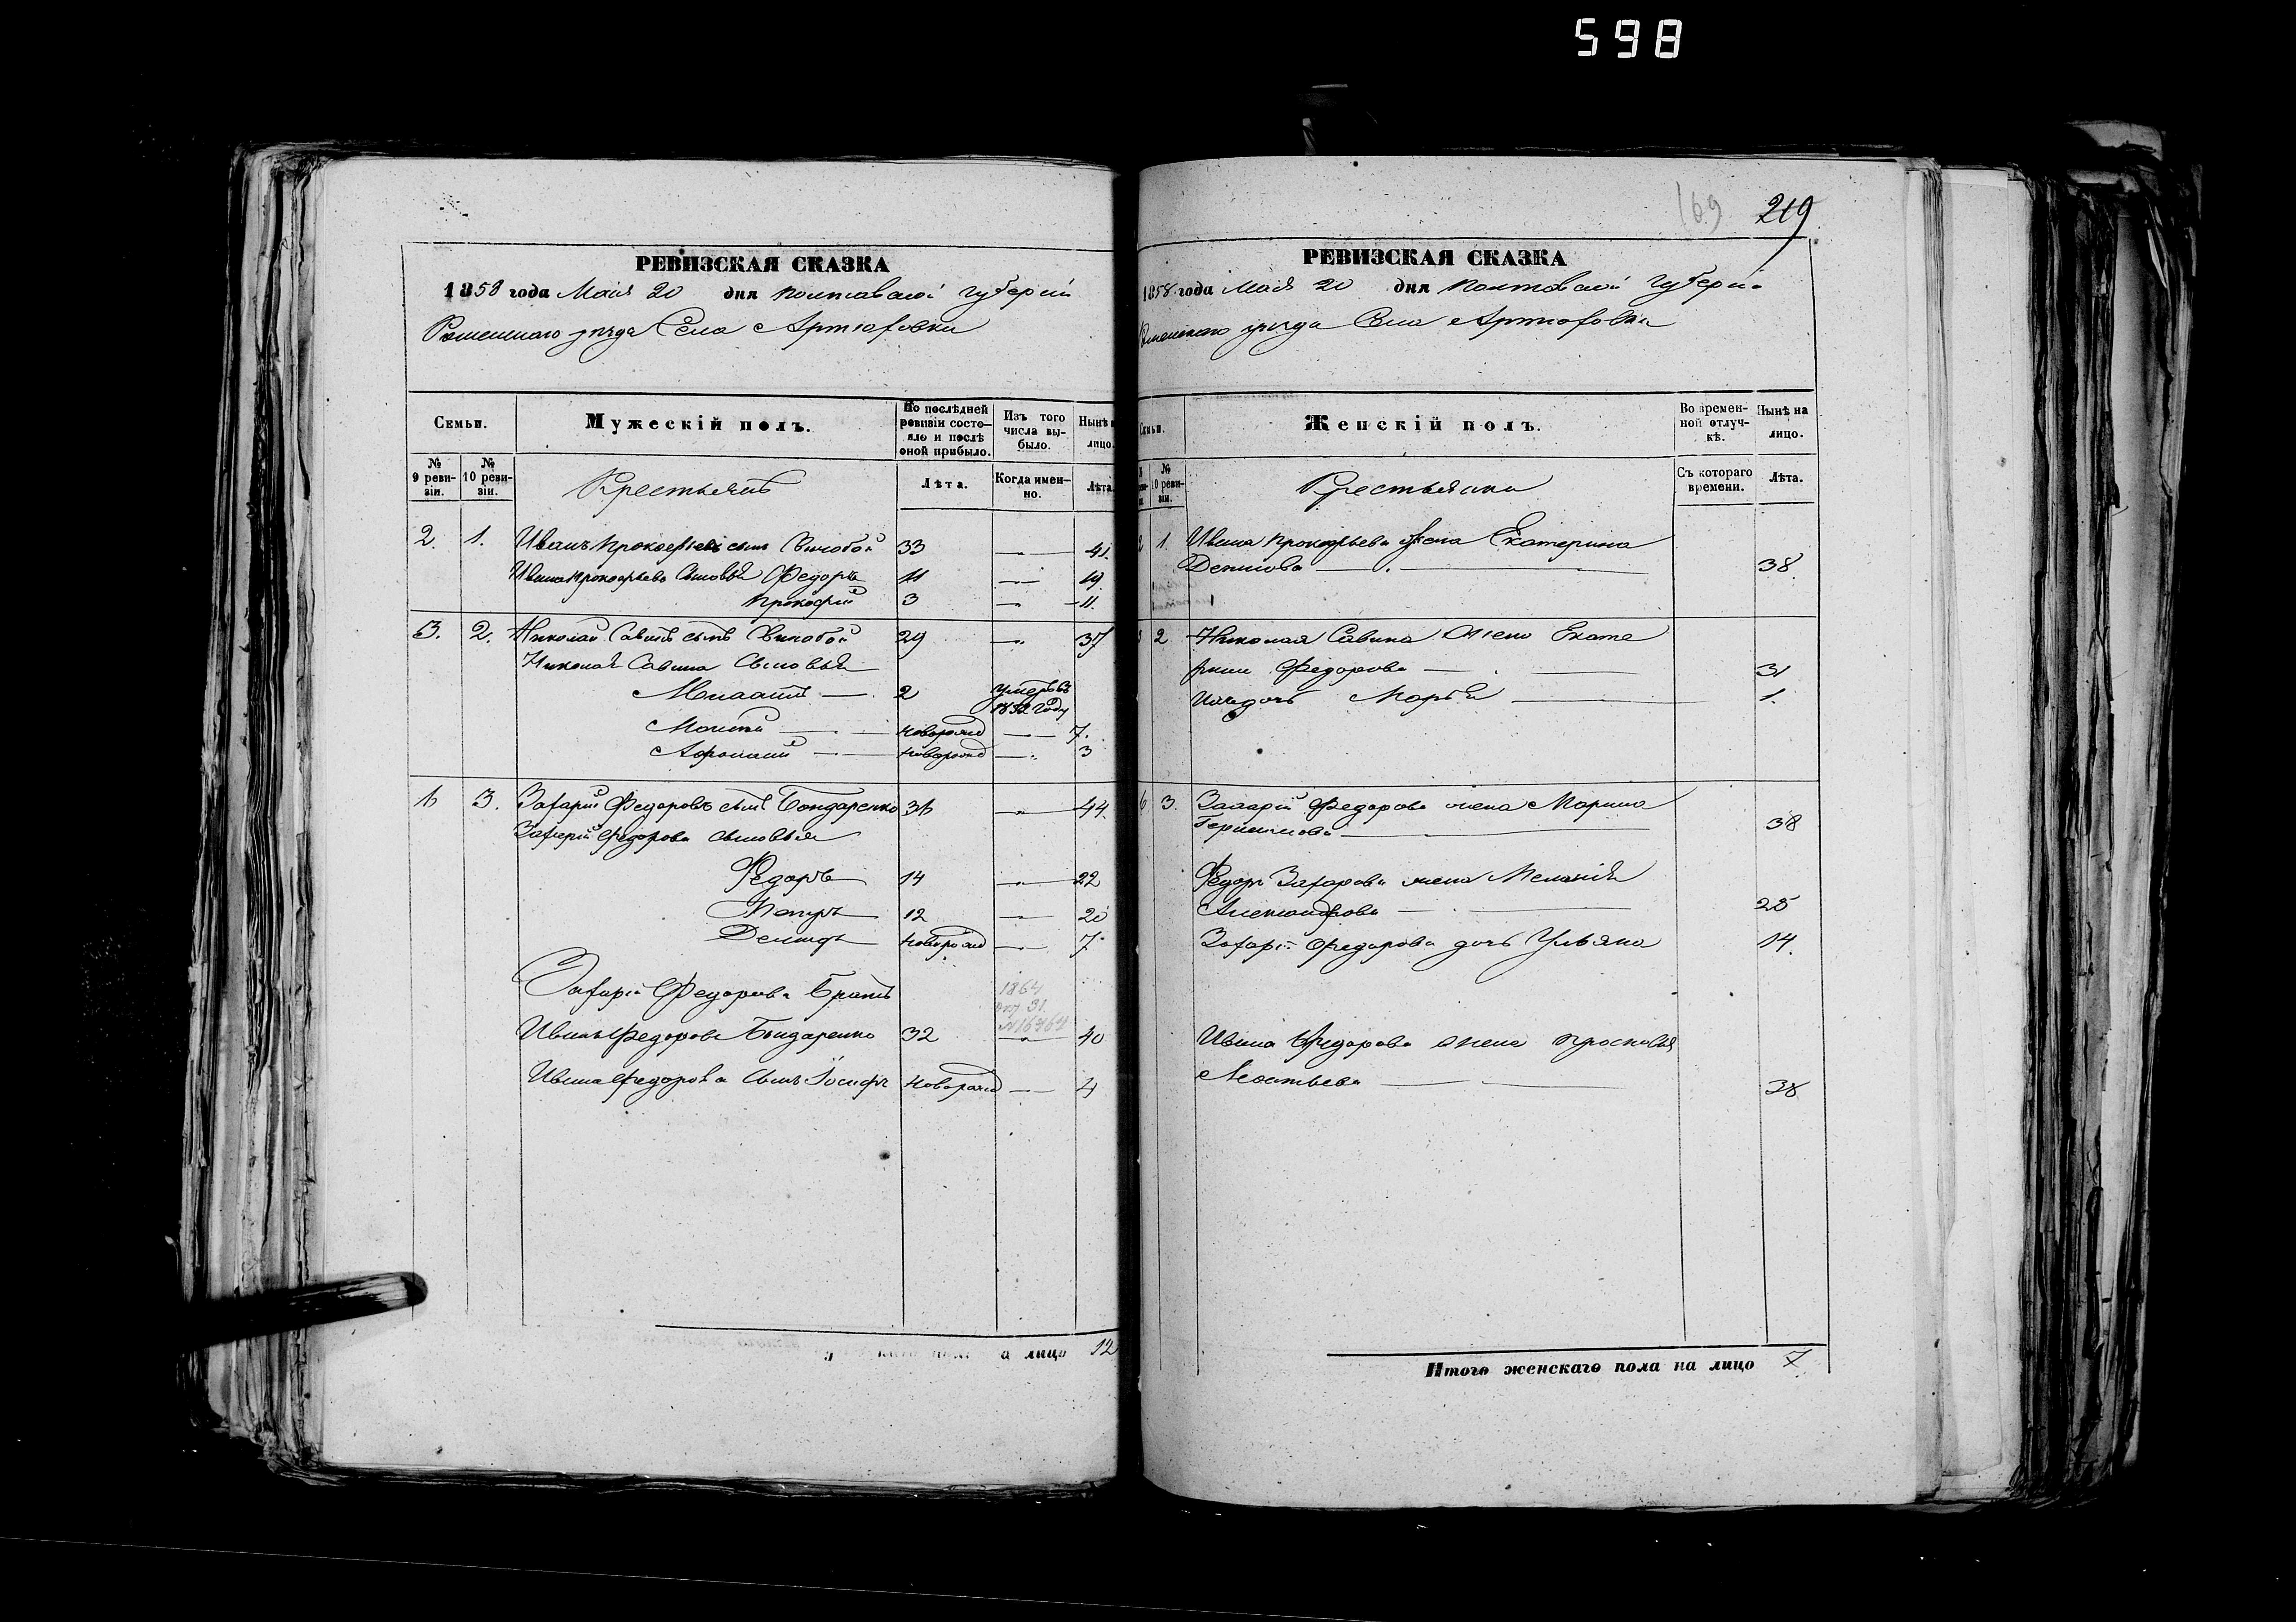 598
169 219
РЕВИЗСКАЯ СКАЗКА
1858 года Мая 20 дня Полтавской Губерніи
Роменскаго уѣзда Села Артюховки
Семьи.
Мужескій полъ.
По послѣдней ревизіи состояло и послѣ оной прибыло.
Изъ того числа выбыло.
Нынѣ лицо.
№ 9 ревизіи.
№ 10 ревизіи.
Крестьянъ
Лѣта.
Когда именно.
Лѣта.
2. 1. Иванъ Прокофіевъ сынъ 33 — 41.
Ивана Прокофьева Сыновья Федоръ 11 — 19.
Прокофій 3 — 11.
3. 2. Николай Савинъ сынъ 29 — 37
Николая Савина Сыновья
2 Умеръ въ 1852 году
Новорожд — 7.
Новорожд — 3
3. Захарій Федоровъ сынъ Бондаренко 36 — 44.
Захарія Федорова сыновья
Федоръ 14 — 22
Петръ 12 — 20
Демидъ Новорожд — 7
Захарія Федорова Братъ
1864
31.
№16764
Иванъ Федоровъ Бондаренко 32 — 40
Ивана Федорова Сынъ Іосифъ Новорожд — 4
а лицо 12
РЕВИЗСКАЯ СКАЗКА
1858 года Мая 20 дня Полтавской Губерніи
Роменскаго уѣзда Села Артюховки
Семьи.
Женскій полъ.
Во временной отлучкѣ.
Нынѣ на лицо.
№ 10 ревизіи.
Крестьянки
Съ котораго времени.
Лѣта.
2 1. Ивана Прокофьева жена Екатерина
Денисова — 38.
3 2 Николая Савина жена Екате
рина Федорова — 31
дочь Марья — 1.
6 3. Захарія Федорова жена Марина
Герасимова — 38
Федора Захарова жена Меланія
Александрова — 25
Захарія Федорова дочь Ульяна 14.
Ивана Федорова жена Прасковья
Леонтьева — 38
Итого женскаго пола на лицо 7